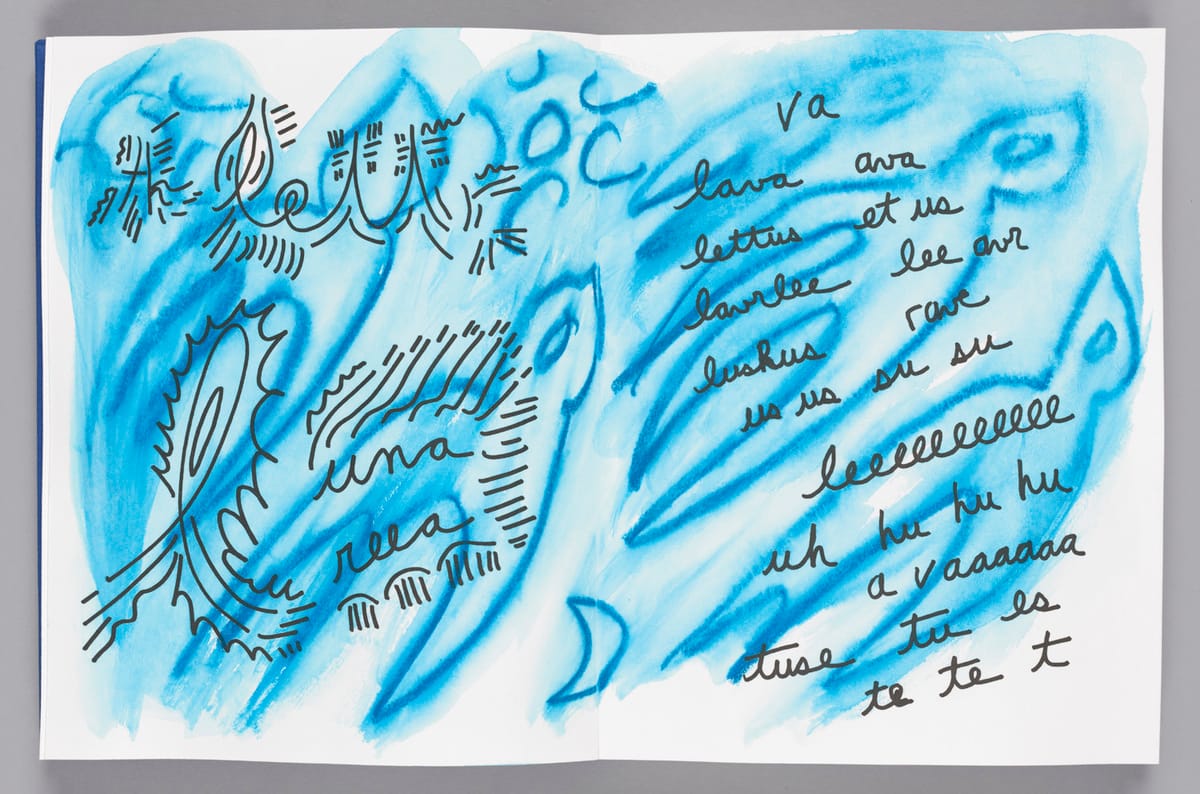 una
reea
va
lava ava
lettus et us
lavrlee lee avr
luskus rave
us us su su
leeeeeeeeeee
uh hu hu hu
a vaaaaaa
tuse tu es
te te t